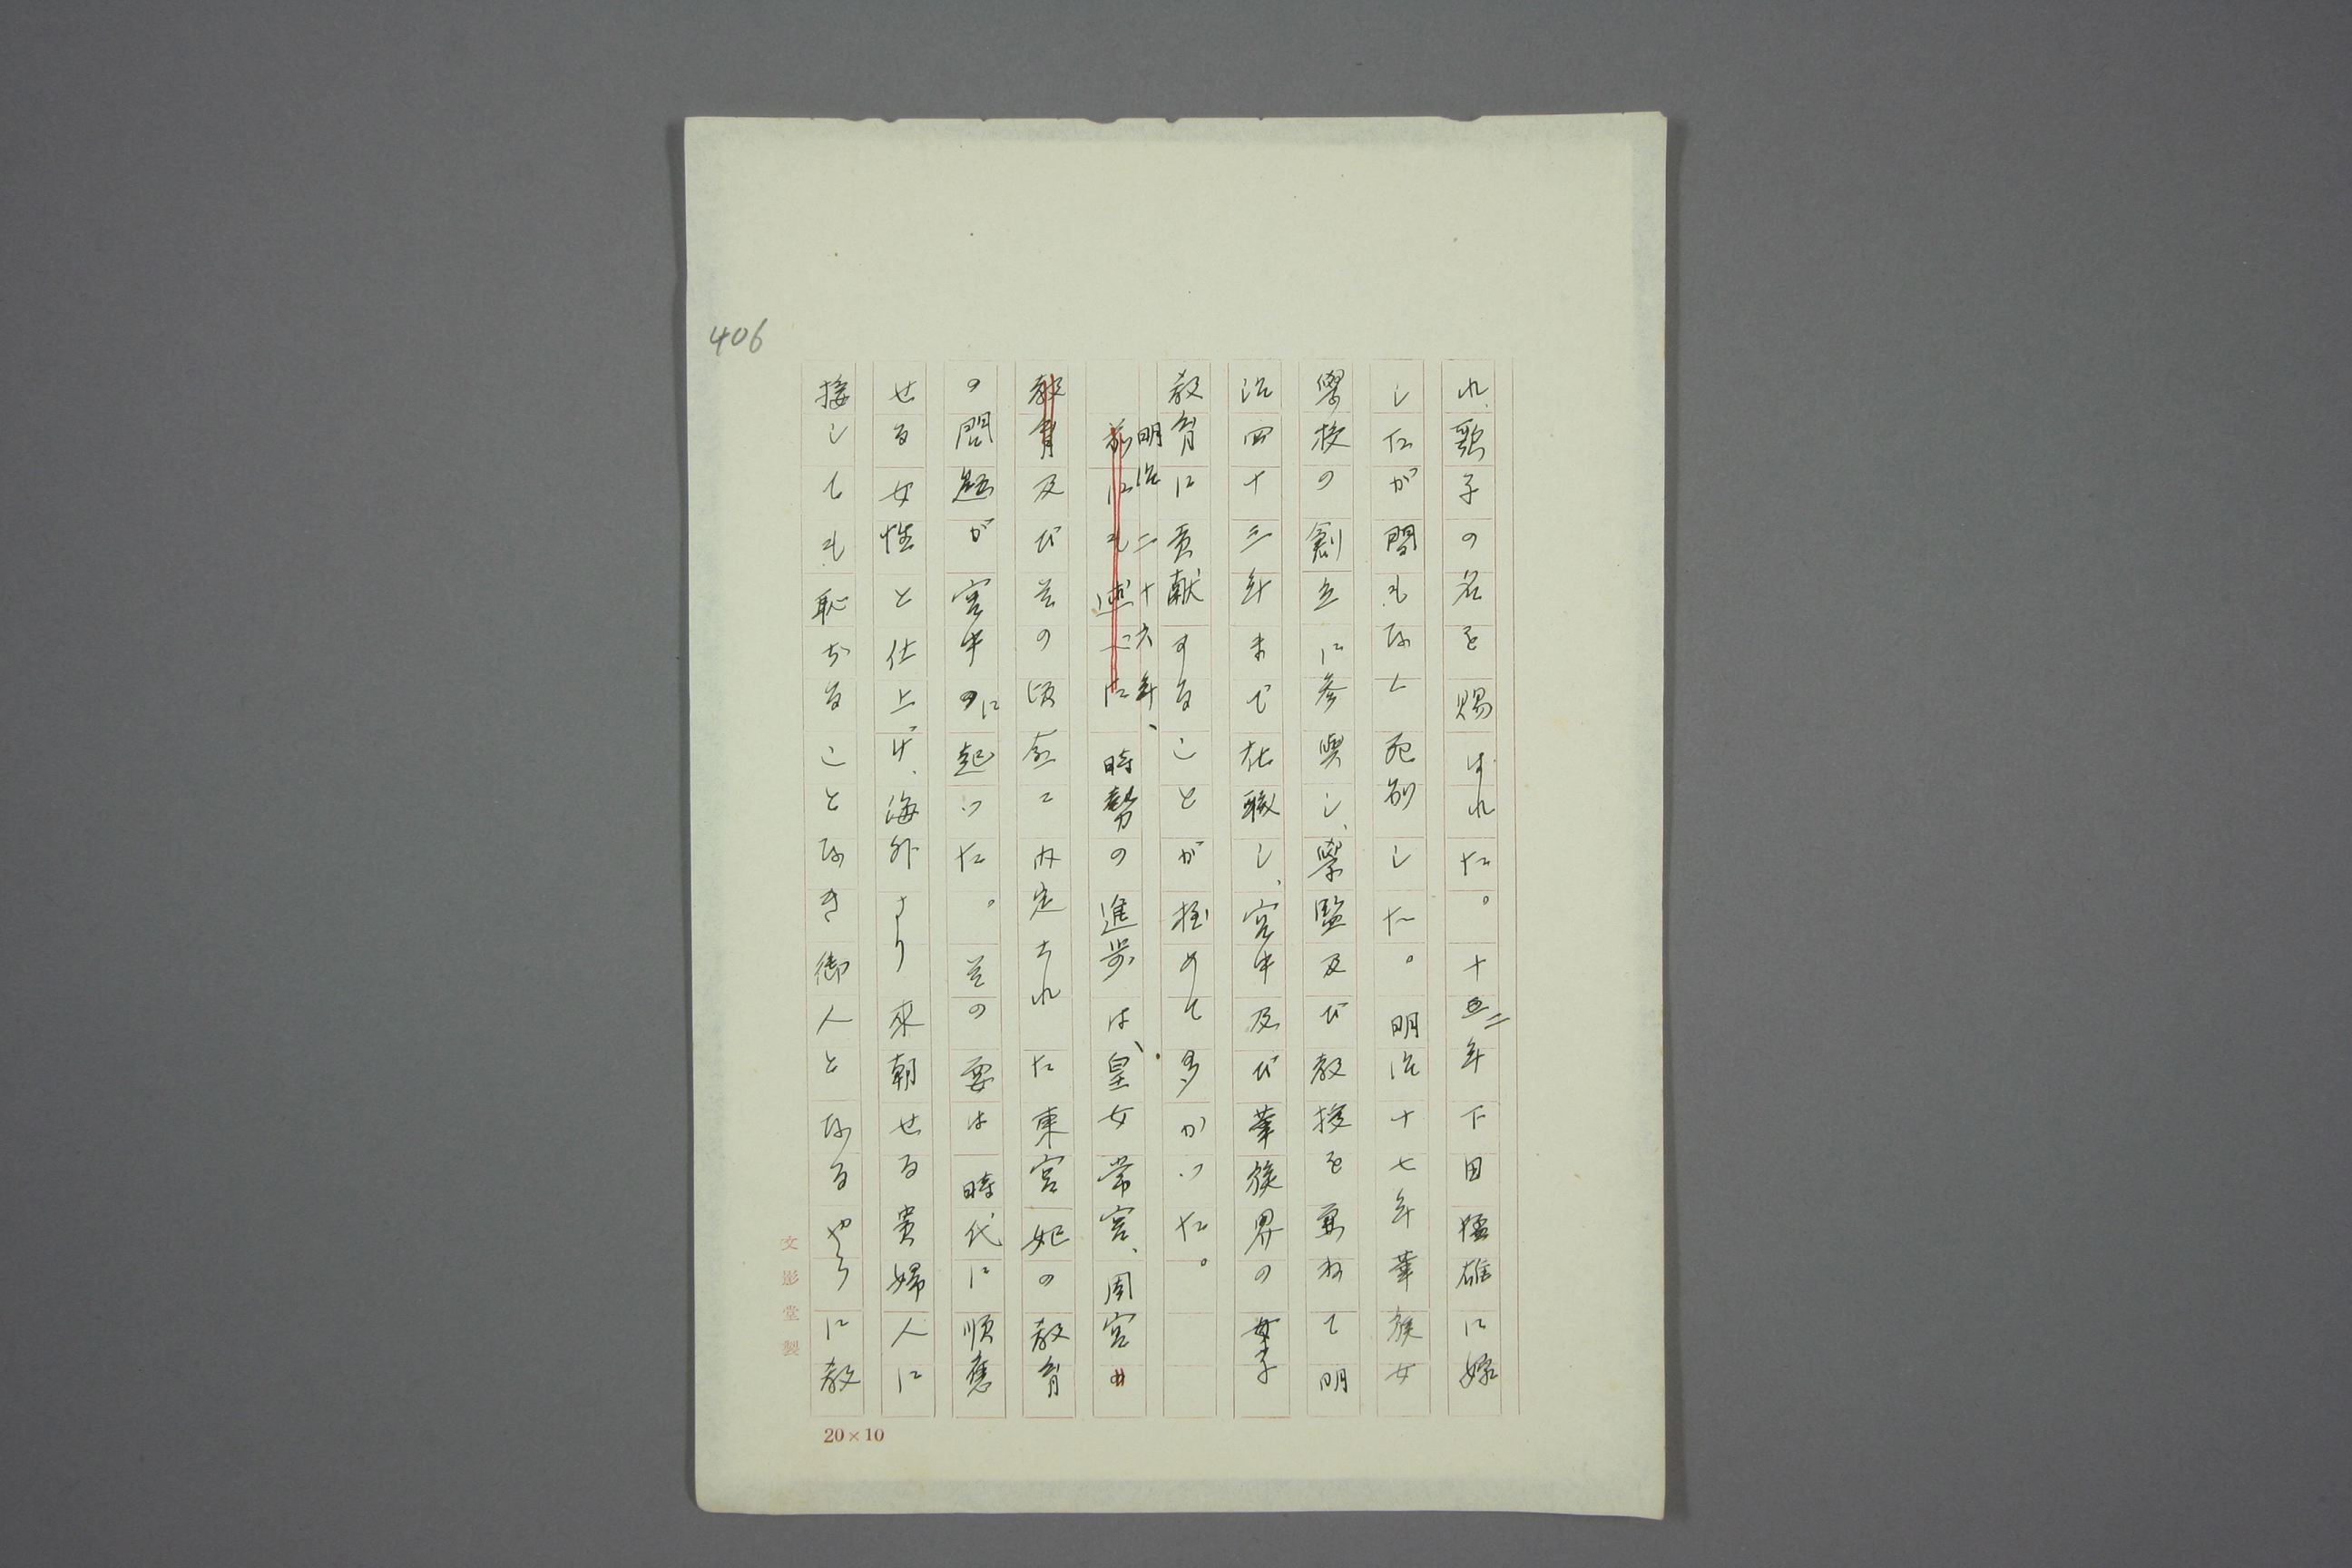 れ、歌子の名を賜はれた。十二年下田猛雄に嫁
したが間もなく死別した。明治十七年華族女
學校の創立に参與し、學監及び教授を兼ねて明
治四十三年まで在職し、宮中及び華族界の女子
教育に貢献することが極めて多かつた。
明治二十六年、
前にも述べた時勢の進歩は、皇女常宮、周宮の
教育及び其の頃既に内定られた東宮妃の教育
の問題が宮中に起つた。其の要は時代に順應
せる女性と仕上げ、海外より來朝せる貴婦人に
接しても恥づることなき御人となるやうに教
406
文影堂製
20×10